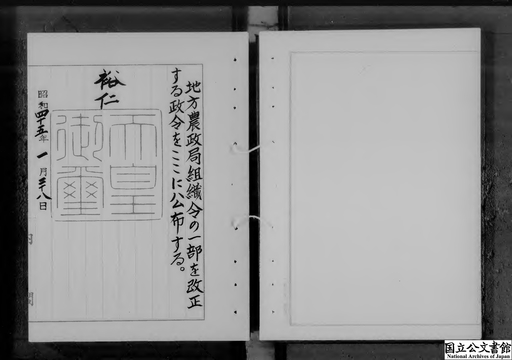 地方農政局組織令の一部を改正
する政令をここに公布する。
裕仁
天皇
御璽
昭和四十五年一月二十八日
国立公文書館
National Archives of Japan